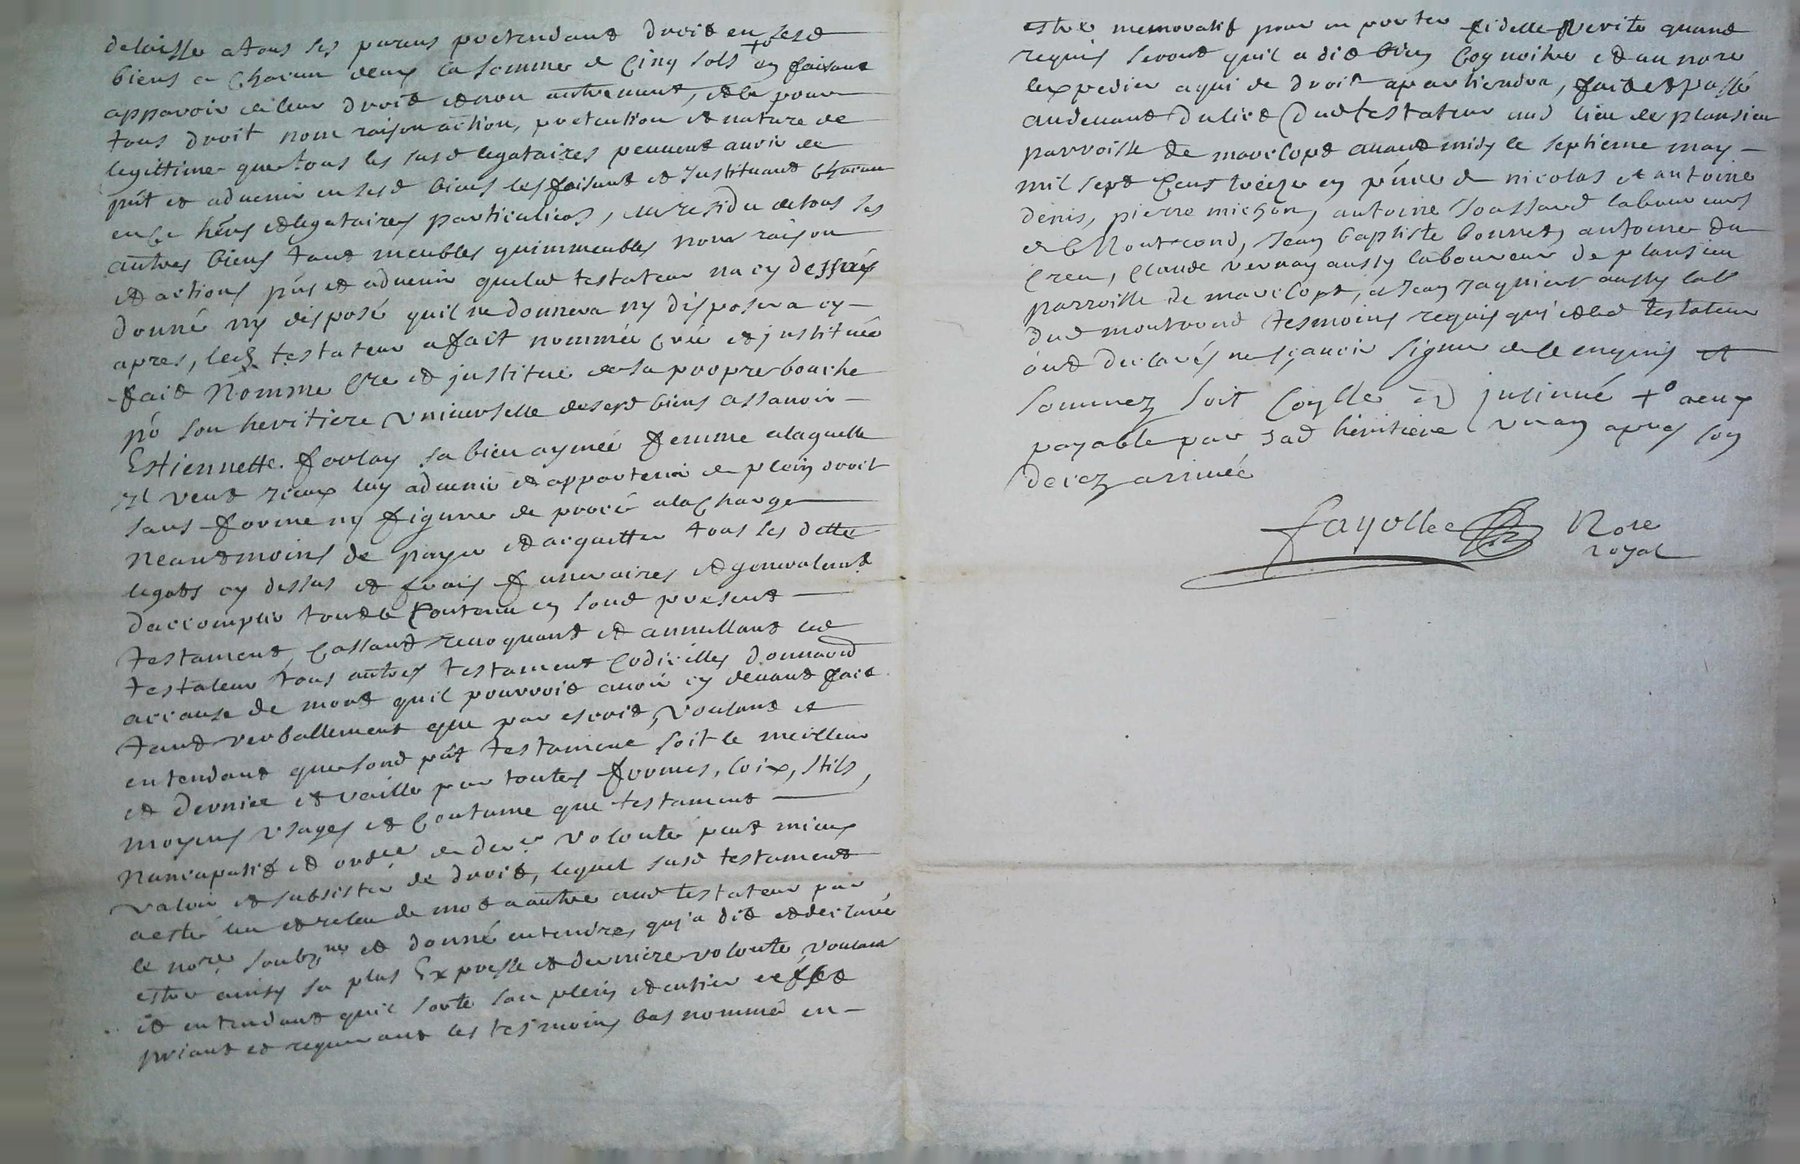 delaisse a tous ses parens pretendant droit en sesd
biens a chacun deux la somme de cinq sols +° en faisant
apparoir de leur droit et non autrement, et le pour
tous droit nom raison action, pretention et nature de
legittime que tous les susd legataires peuvent avoir de
pñt et advenir en sesd biens les faisant et instituant chacun
en ce hers et legataires particuliers, au residu de tous ses
autres biens tant meubles quimmeubles noms raison
et actions pñs et advenir queled testateur na cy dessus
donné ny disposé quil ne donnera ny disposera cy
apres, led testateur a fait nommée crée et instituée
fait nomme cre et institue de sa propre bouche
po son heritiere universelle de sesd biens assavoir
Estiennette forlay sa bien aymée femme a laquelle
il veut iceux luy advenir et appartenir de plein droit
sans forme ny figure de procé a la charge
neantmoins de payer et acquitter tous ses dette
legats cy dessus et frais funeraires et generalem.t
daccomplir tout le contenu en sond present
testament, cassant revoquant et annullant led
testateur tous autres testament codicilles donna.on
a cause de mort quil pourroit avoir cy devant fait
tant verballement que par escrit, voulant et
entendant que sond pñt testament soit le meilleur
et dernier et vaille par toutes formes, loix, stils,
moyens usages et coutume que testament
nuncupatif et ord.ce de der.e volonté peut mieux
valoir et subsister de droit, lequel susd testament
a esté leu et releu de mot a autre aud testateur par
le no.re soubz.né et donné entendre, qui a dit et declaré
estre ainsy sa plus Expresse et derniere volonte, voulant
et entendant quil sorte son plein et entier effet
priant et requerant les tesmoins bas nommé en
estre memoratif pour en porter fidelle verite quand
requis seront quil a dit bien cognoitre et au no.re
lexpedier a qui de droit apartiendra, fait et passé
au devant du lict dud testateur aud lieu de plansieu
parroisse de maveloys avant midy le septieme may
mil sept cens treize en pñce de nicolas et antoine
denis, pierre michon, antoine Joassard laboureurs
de Montrond, Jean baptiste bonnet, antoine du
creu, claude vernay aussy laboureur de plansieu
parroisse de maveloys, et Jean Jagnieur aussy lab.r
dud montrond tesmoins requis qui et led testateur
ont declarés ne sçavoir signer de ce enquis et
sommez soit coyllé et insinué +° a eux
payable par sad heritiere un an apres son
decez arrivée
fayolle No.re
royal